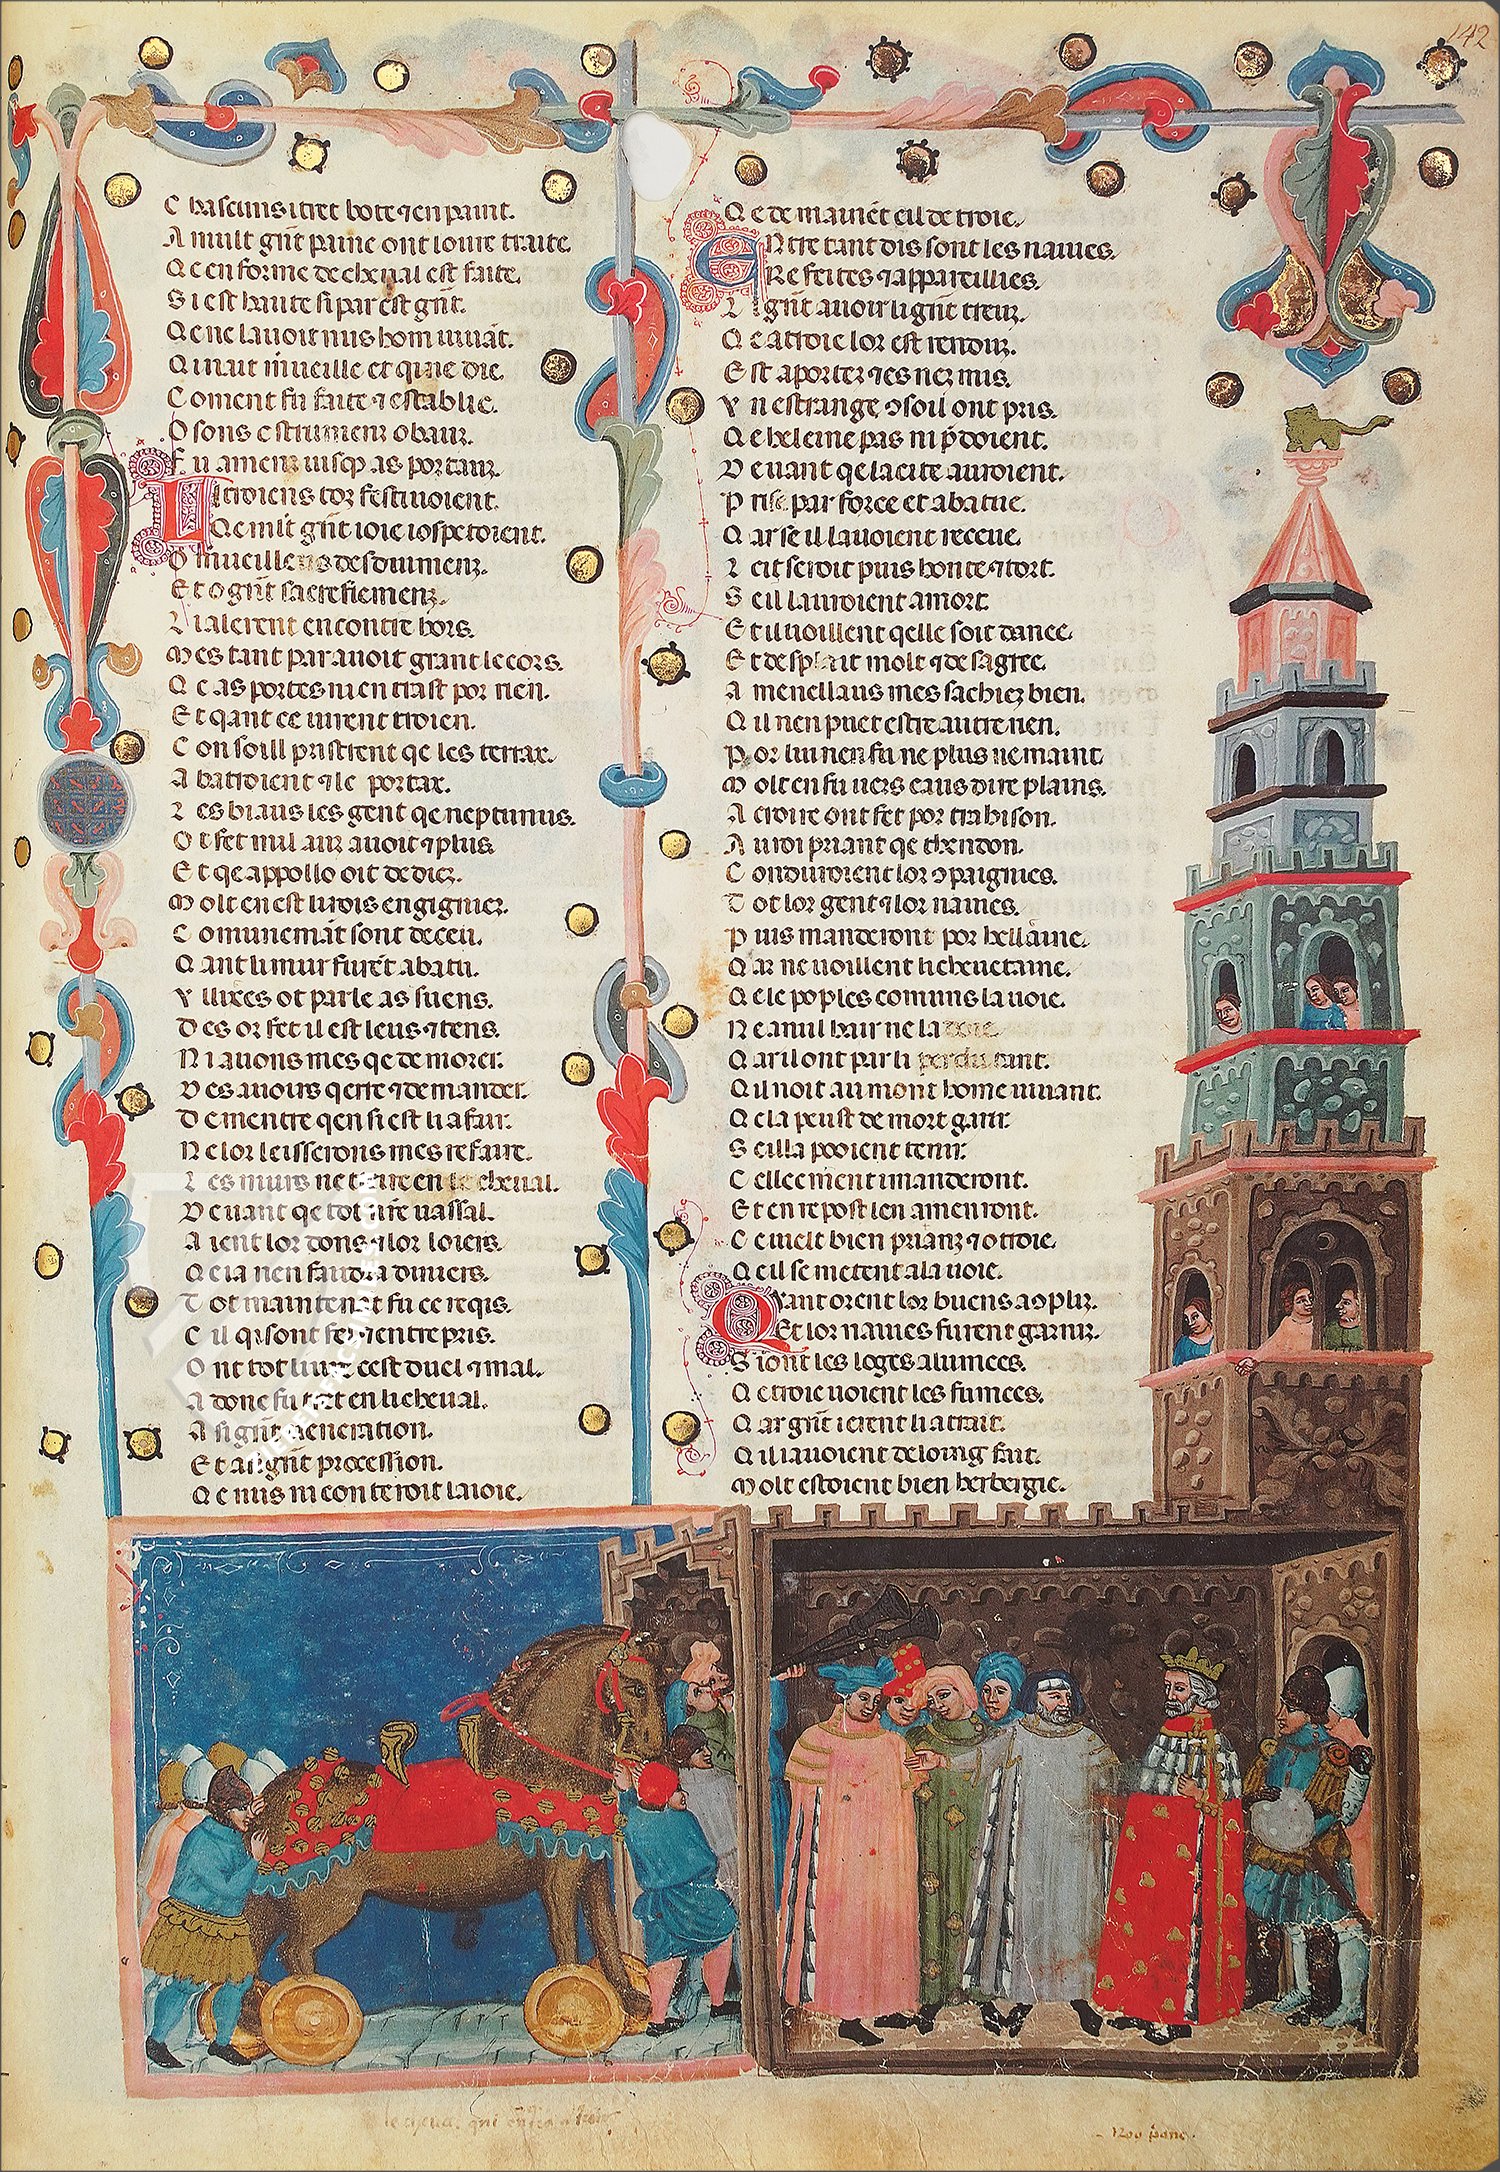 142
C hascuns i tret bote ⁊ en paint.
A mult gñt paine ont loure traite.
Q e en forme de cheual est faite.
S i est haute si par est gñt.
Q e ne lauoit nus hom uiuāt.
Q in ait mueille et qui e die.
C oment fu faite ⁊ establie.
O sons estrumenz obauz.
F u amenz iusqp as portauz.
L i troiens toz festiuoient.
Q e mlt gñt ioie i ospetoient.
O mueilleus desduimenz.
E t o gñt sacrefiemenz.
L i alerent encontre hors.
M es tant par auoit grant le cors.
Q e as portes ni entrast por rien.
E t qant ce uirent troien.
C onsoill pristrent qe les terrax.
A batroient ⁊ le portax.
L es biaus les gent qe neptunus.
O t fet mil anz auoit ⁊ plus
E t qe appollo oit dediez.
M olt en est lirois engigniez.
C omunemāt sont deceu.
Q ant li mur furēt abatu.
V lixes ot parle as suens.
D es or fet il est leus ⁊ tens.
N i auons mes qe de morer.
D es auoirs qerre ⁊ demander.
D ementre qensi est li afair.
N e lor leisserons mes refaire.
L es murs ne traire en le cheual.
D euant qe tot nre uassal.
A ient lor dons ⁊ lor loiers.
Q e ia nen faudra diuiers.
T ot maintenāt fu ce reqis.
C il qi sont fes entrepris.
O nt tot liure cest duel ⁊ mal.
A donc fu tret en li cheual.
A si gñt generation.
E t a si gñt procession.
Q e nus ni conteroit la ioie.
Q e demainēt cil de troie.
E Ntretantdis sont les nauies.
R efeites ⁊ appareillies.
L i gñt auoir li gñt treuz.
Q e a troie lor est renduz.
E st aportez ⁊ es nez mis.
V n estrange ɔsoil ont pris.
Q e heleine pas ni ꝑdoient.
D euant qe la cite auroient.
P rise par force et abatue.
Q ar se il lauoient receue.
L cit seroit puis honte ⁊ tort.
S e il lauroient a mort.
E t il uoillent qelle soit danee.
E t desplait molt ⁊ desagree.
A menellaus mes sachiez bien.
Q il nen puet estre autre rien.
P or lui nen fu ne plus ne maint
M olt en fu uers eaus dire plains.
A croire ont fet por trahison.
A u roi priant qe thenedon.
C onduiroient lor ɔpaignies.
T ot lor gent ⁊ lor nauies.
P uis manderont por hellaine.
Q ar ne uoillent li cheuetaine.
Q e le poples comuns la uoie.
N e a nul hair ne la doie
Q ar il ont par li perdu tant.
Q il noit au mont home uiuant.
Q e la peust de mort garir.
S e il la pooient tenir.
C elleement i manderont.
E t en repost len amenront.
C e uielt bien prianz ⁊ otroie.
Q e il se metent a la uoie.
Q Vant orent lor buens aoplir.
E t lor nauies furent garnir.
S i ont les loges alumees.
Q e troie uoient les fumees.
Q ar gñt ierent li atrait.
Q il i auoient de loing fait.
M olt estoient bien herbergie.